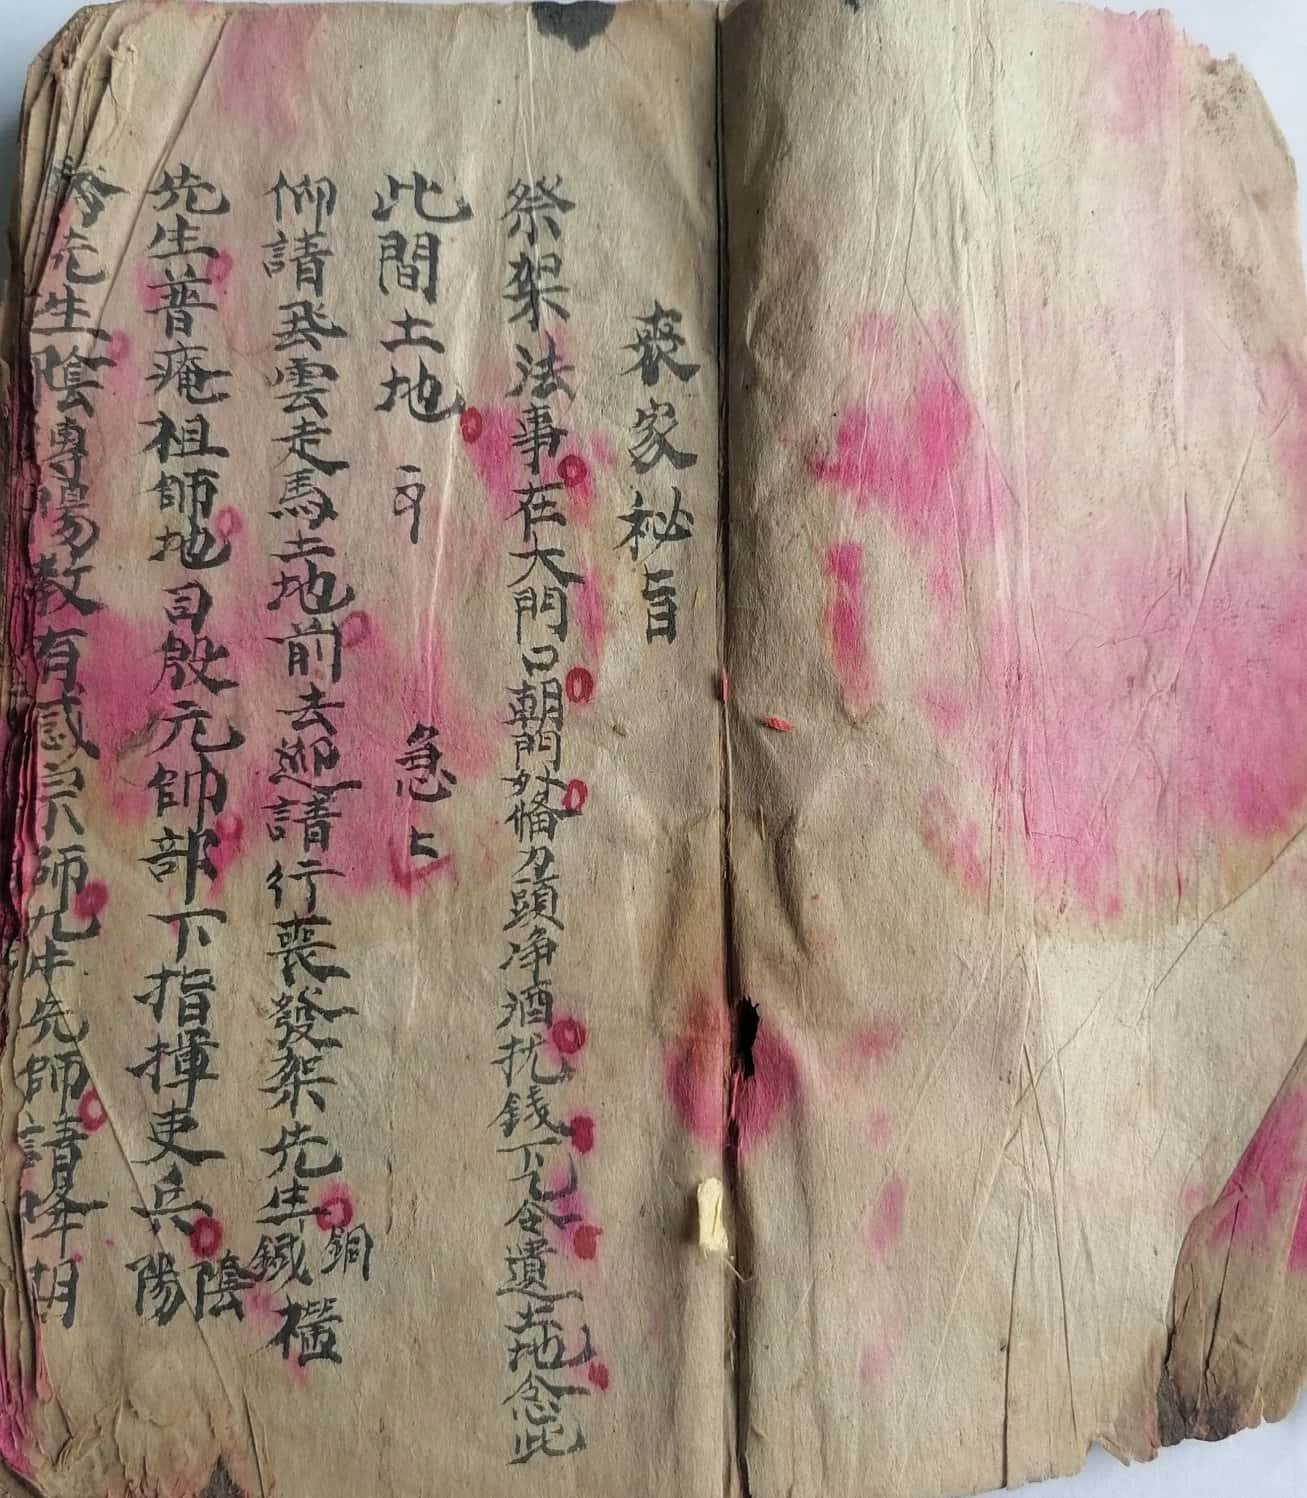 喪家秘旨
祭架法事在大門口朝門外俻刀頭净酒扰錢下凢令遣土地念此
此間土地 急
仰請飛雲走馬土地前去迎請行喪發架先生銅鐡櫺
先生普庵祖師地司殷元帥部下指揮吏兵陰陽
先生陰傳陽教有感宗師九牛先師請降胡